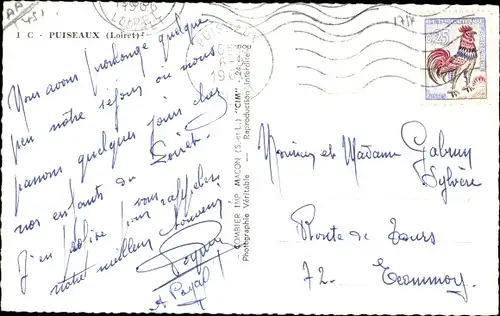 AA
451
LOIRET
1 C - PUISEAUX (Loiret)
PUISEAUX
1757
0,25
Nous avons prolongé quelque
peu notre séjour où nous
passons quelques jours chez
nos enfants du Loiret.
J'en profite pour vous rappeler
notre meilleur souvenir
A Payal
COMBIER IMP. MACON (S.-et-L.) "CIM"
Photographie Véritable - Reproduction Interdite
Monsieur et Madame Gabruy
Sylvère
Route de Tours
72. Ecommoy